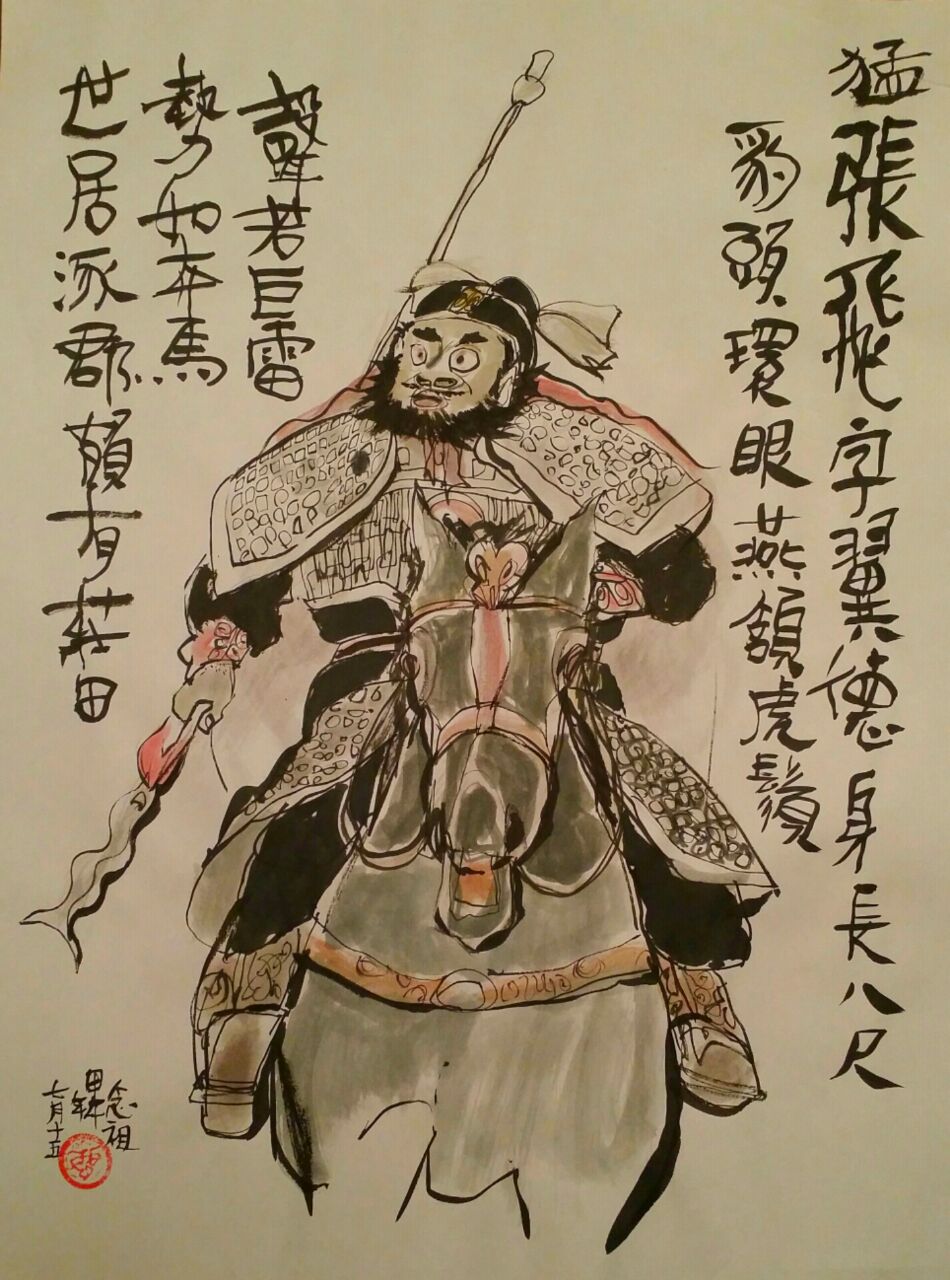 猛張飛字翼德身長八尺
豹頭環眼燕頷虎鬚
聲若巨雷
勢如奔馬
世居涿郡頗有莊田
念祖
七月十五